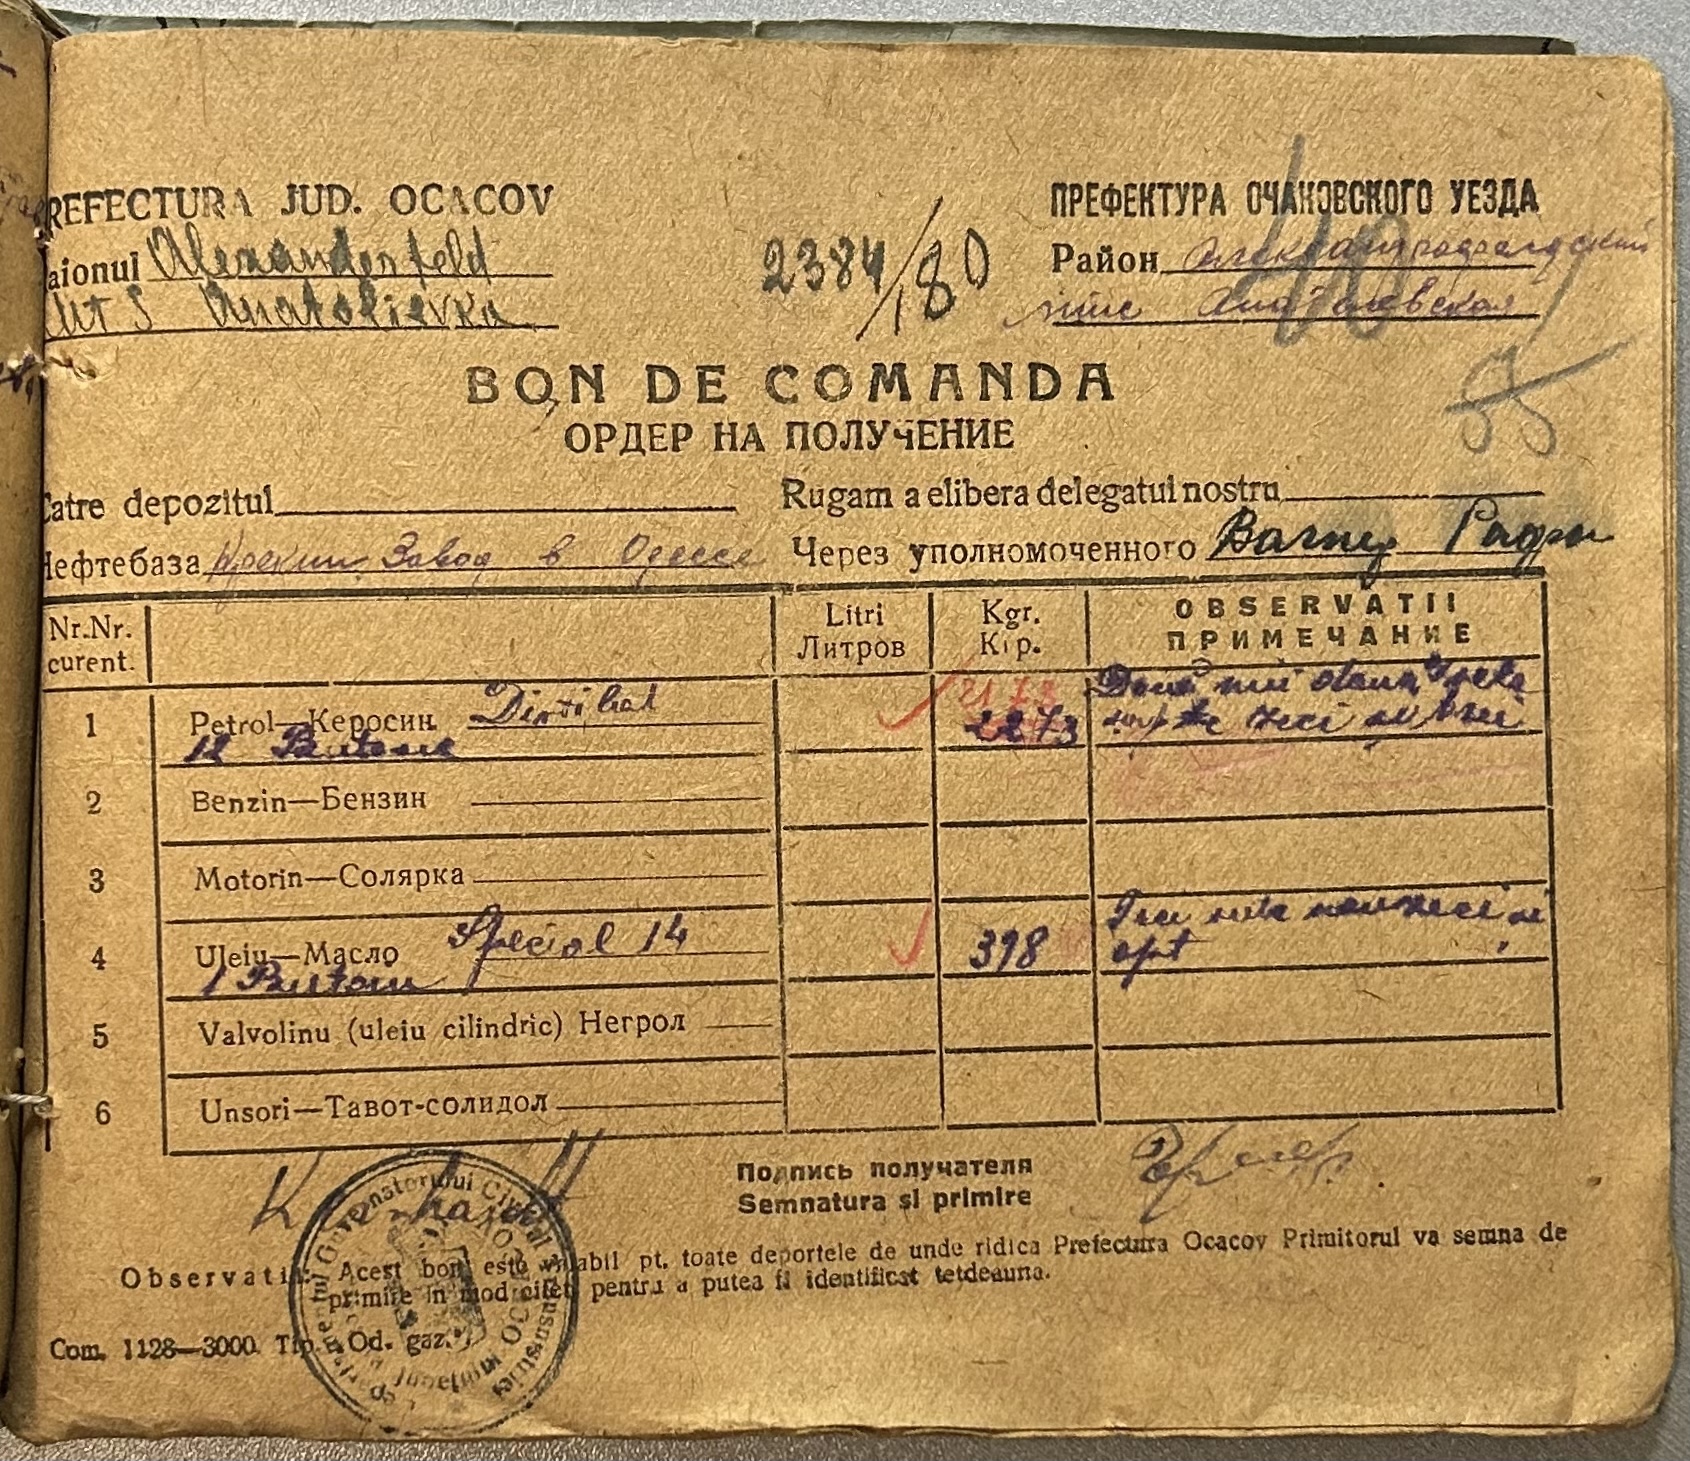 REFECTURA JUD. OCACOV
aionul Alexanderfeld
Anatolievka
2384/180
ПРЕФЕКТУРА ОЧАКОВСКОГО УЕЗДА
Район
мтс
BON DE COMANDA
ОРДЕР НА ПОЛУЧЕНИЕ
55
Catre depozitul
Нефтебаза Крекин Завод в Одессе
Rugam a elibera delegatul nostru
Через уполномоченного
Nr.Nr. curent.
Litri Литров
Kgr. Кгр.
OBSERVATII ПРИМЕЧАНИЕ
1 Petrol—Керосин Distilat 2273 Doua mii doua sute
12 Butoae sapte zeci si trei
2 Benzin—Бензин
3 Motorin—Солярка
4 Uleiu—Масло Special 14 398 Trei sute nouazeci si
1 Butoiu opt
5 Valvolinu (uleiu cilindric) Негрол
6 Unsori—Тавот-солидол
Подпись получателя
Semnatura si primire
Observatii: Acest bon este valabil pt. toate deportele de unde ridica Prefectura Ocacov Primitorul va semna de
primire in mod citet, pentru a putea fi identificat tetdeauna.
Com. 1128—3000. Tip. Od. gaz.
Guvernatorului Civil